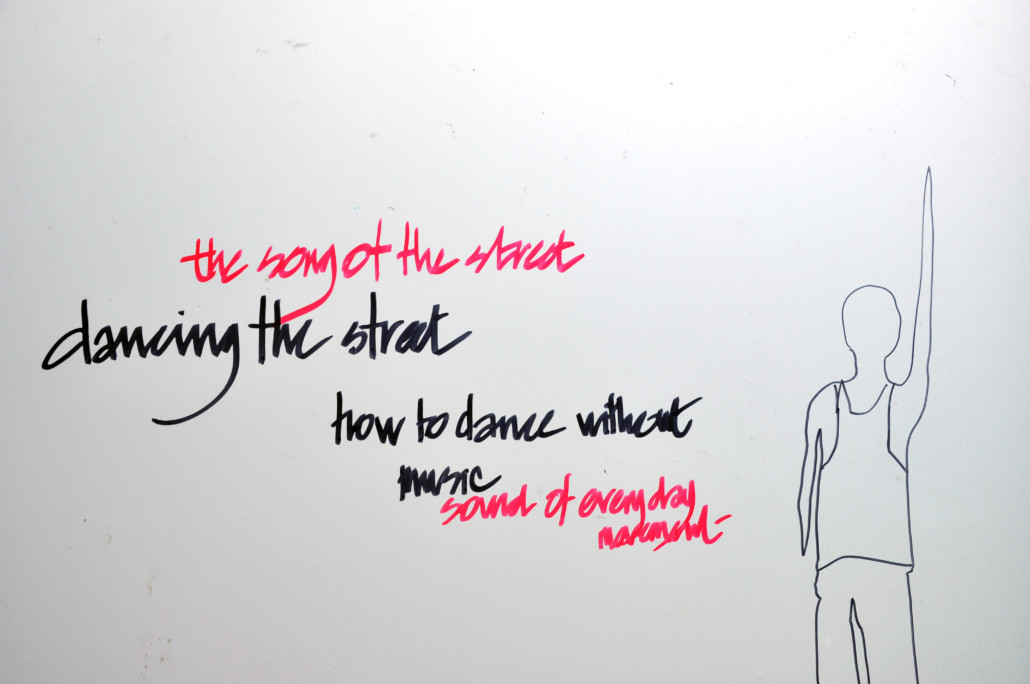 the song of the street
dancing the street
how to dance without
music
sound of everyday
movement